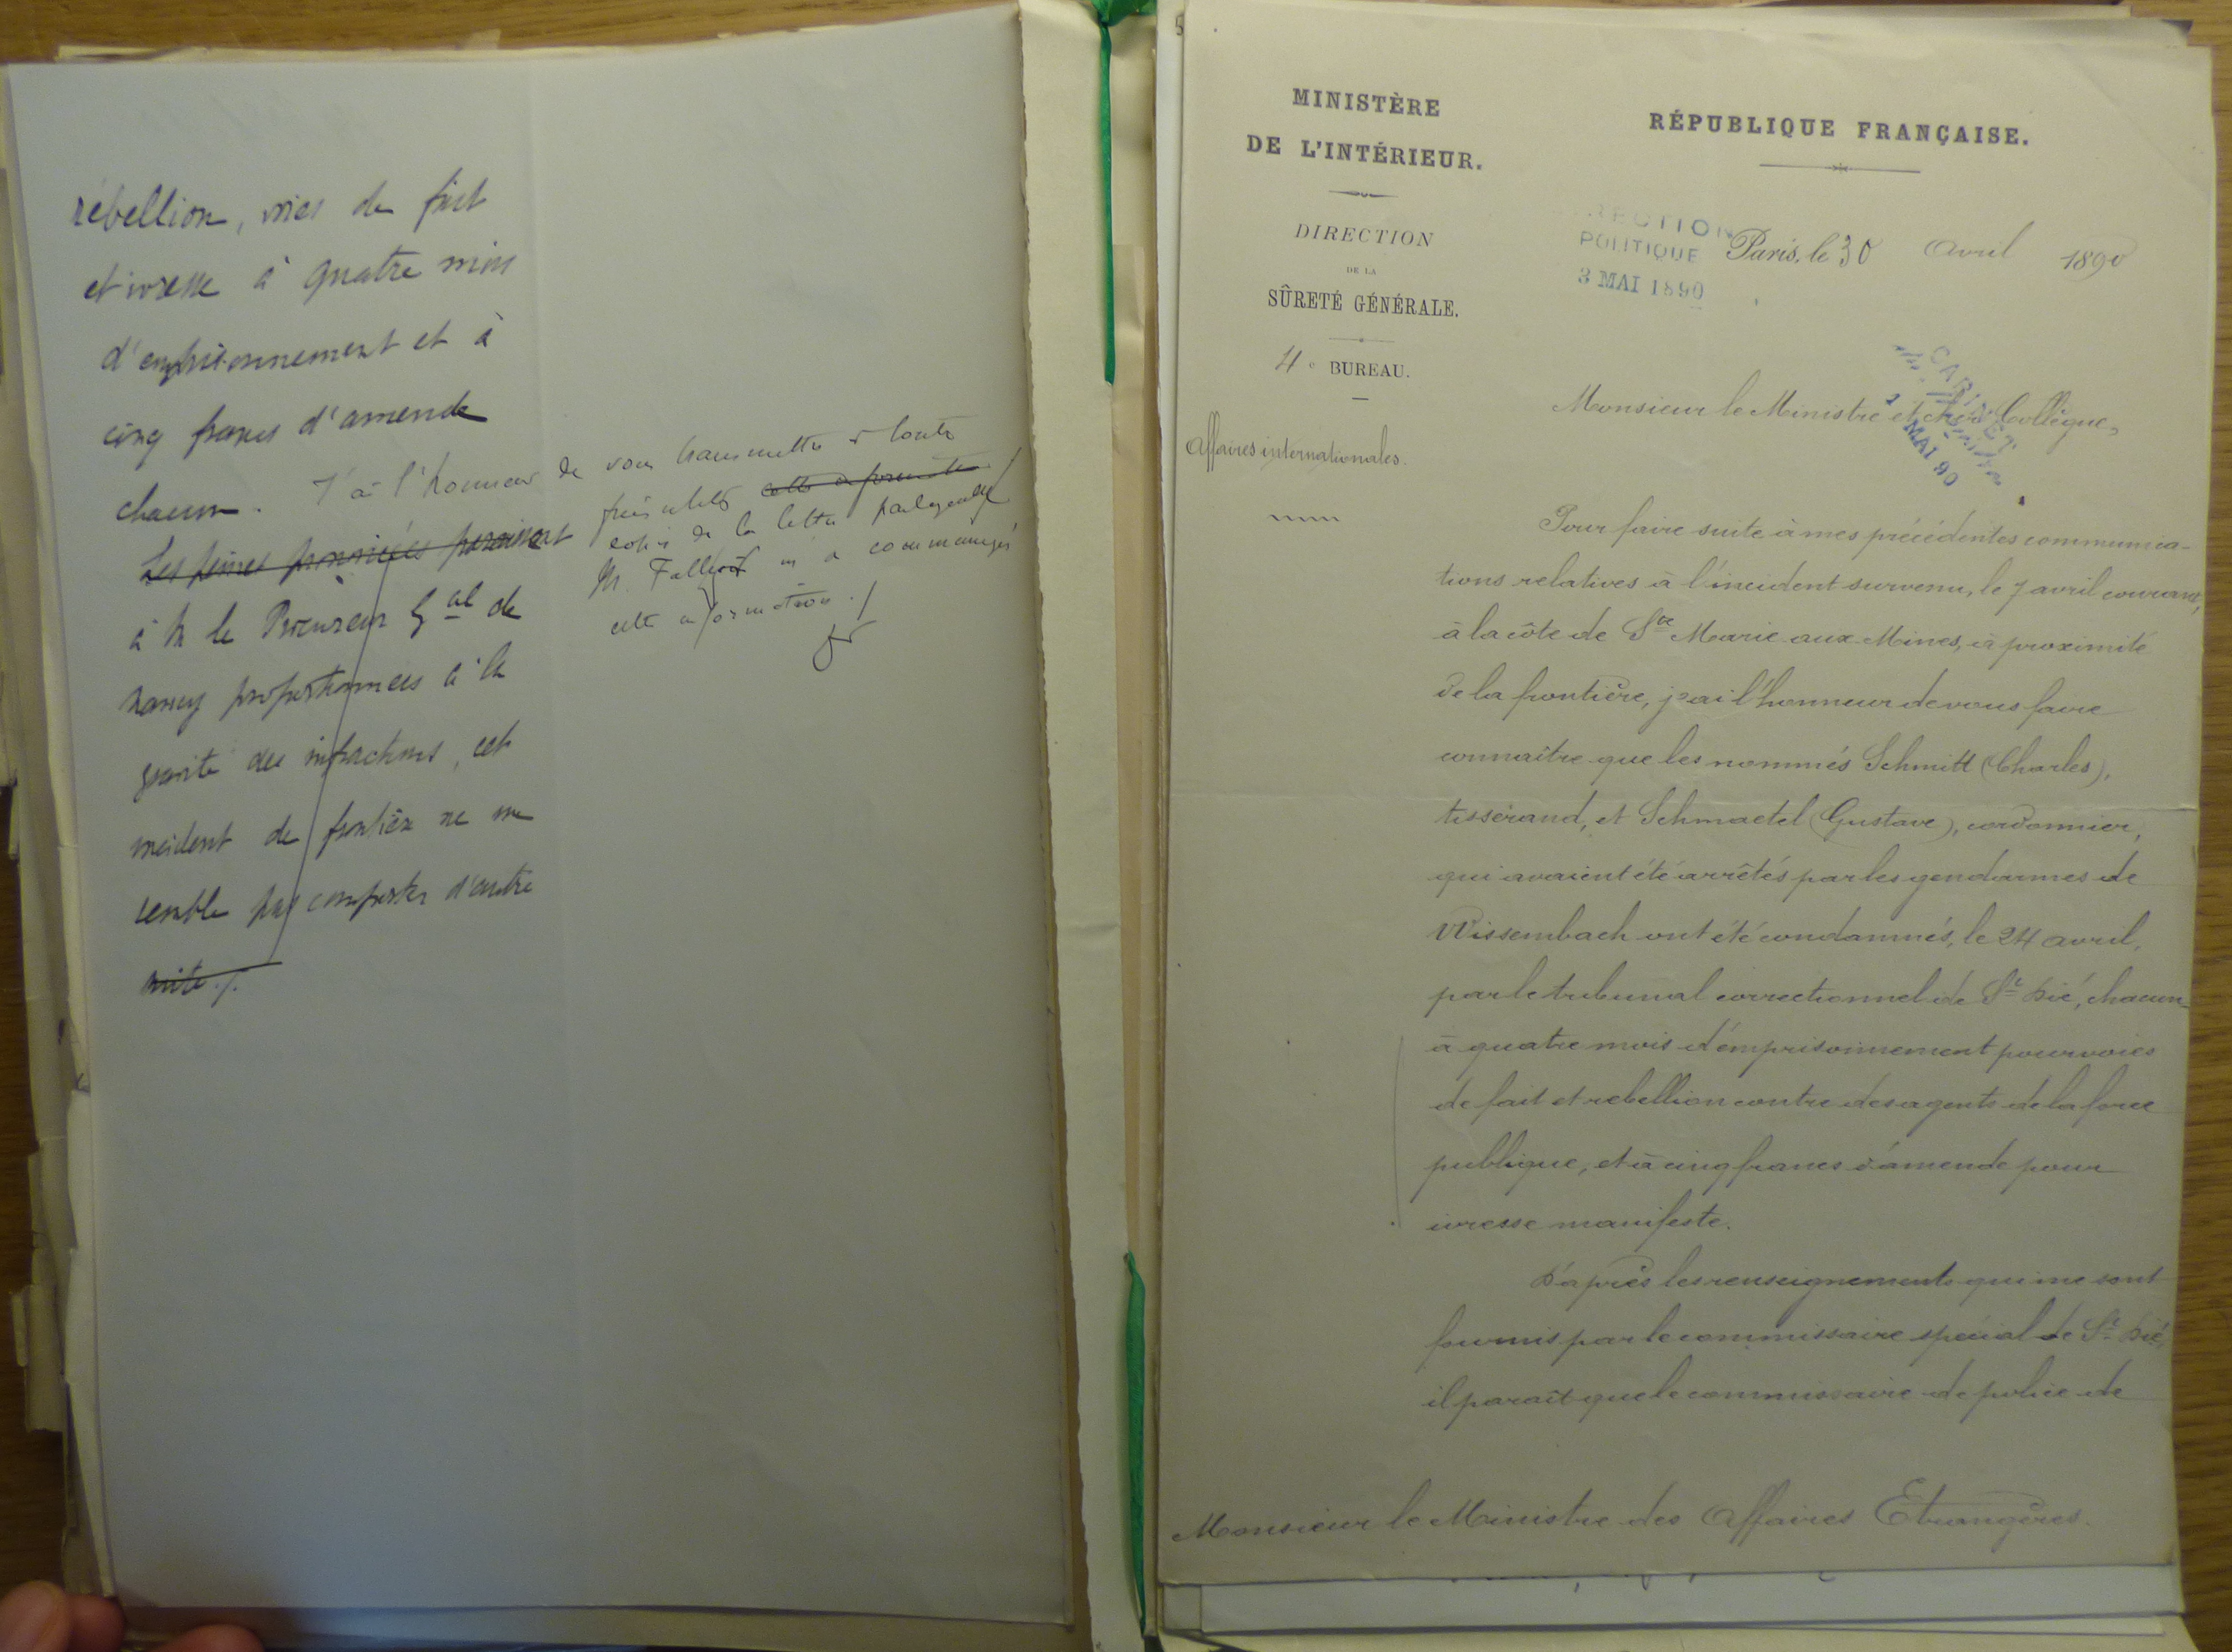 rébellion, voies de fait
et ivresse à quatre mois
d'emprisonnement et à
cinq francs d'amende
chacun.
J'ai l'honneur de vous transmettre
Les peines prononcées paraissant
à M le Procureur Gal de
Nancy proportionnées à la
gravité des infractions, cet
incident de frontière ne me
semble pas comporter d'autre
suite ./.
copie de la lettre par laquelle
M. Fallières m'a communiqué
cette information ./
MINISTÈRE
DE L'INTÉRIEUR.
DIRECTION
DE LA
SÛRETÉ GÉNÉRALE.
4e BUREAU.
Affaires internationales.
RÉPUBLIQUE FRANÇAISE.
RECTION
POLITIQUE
3 MAI 1890
Paris, le 30 Avril 1890
CABINET
MAI 90
Monsieur le Ministre et cher Collègue,
Pour faire suite à mes précédentes communica-
tions relatives à l'incident survenu, le 7 avril courant,
à la côte de Ste Marie aux Mines, à proximité
de la frontière, j'ai l'honneur de vous faire
connaître que les nommés Schmitt (Charles),
tisserand, et Schmaetel (Gustave), cordonnier,
qui avaient été arrêtés par les gendarmes de
Wissembach ont été condamnés, le 24 avril,
par le tribunal correctionnel de St Dié, chacun
à quatre mois d'emprisonnement pour voies
de fait et rebellion contre des agents de la force
publique, et à cinq francs d'amende pour
ivresse manifeste.
D'après les renseignements qui me sont
fournis par le commissaire spécial de St Dié,
il paraît que le commissaire de police de
Monsieur le Ministre des Affaires Etrangères.